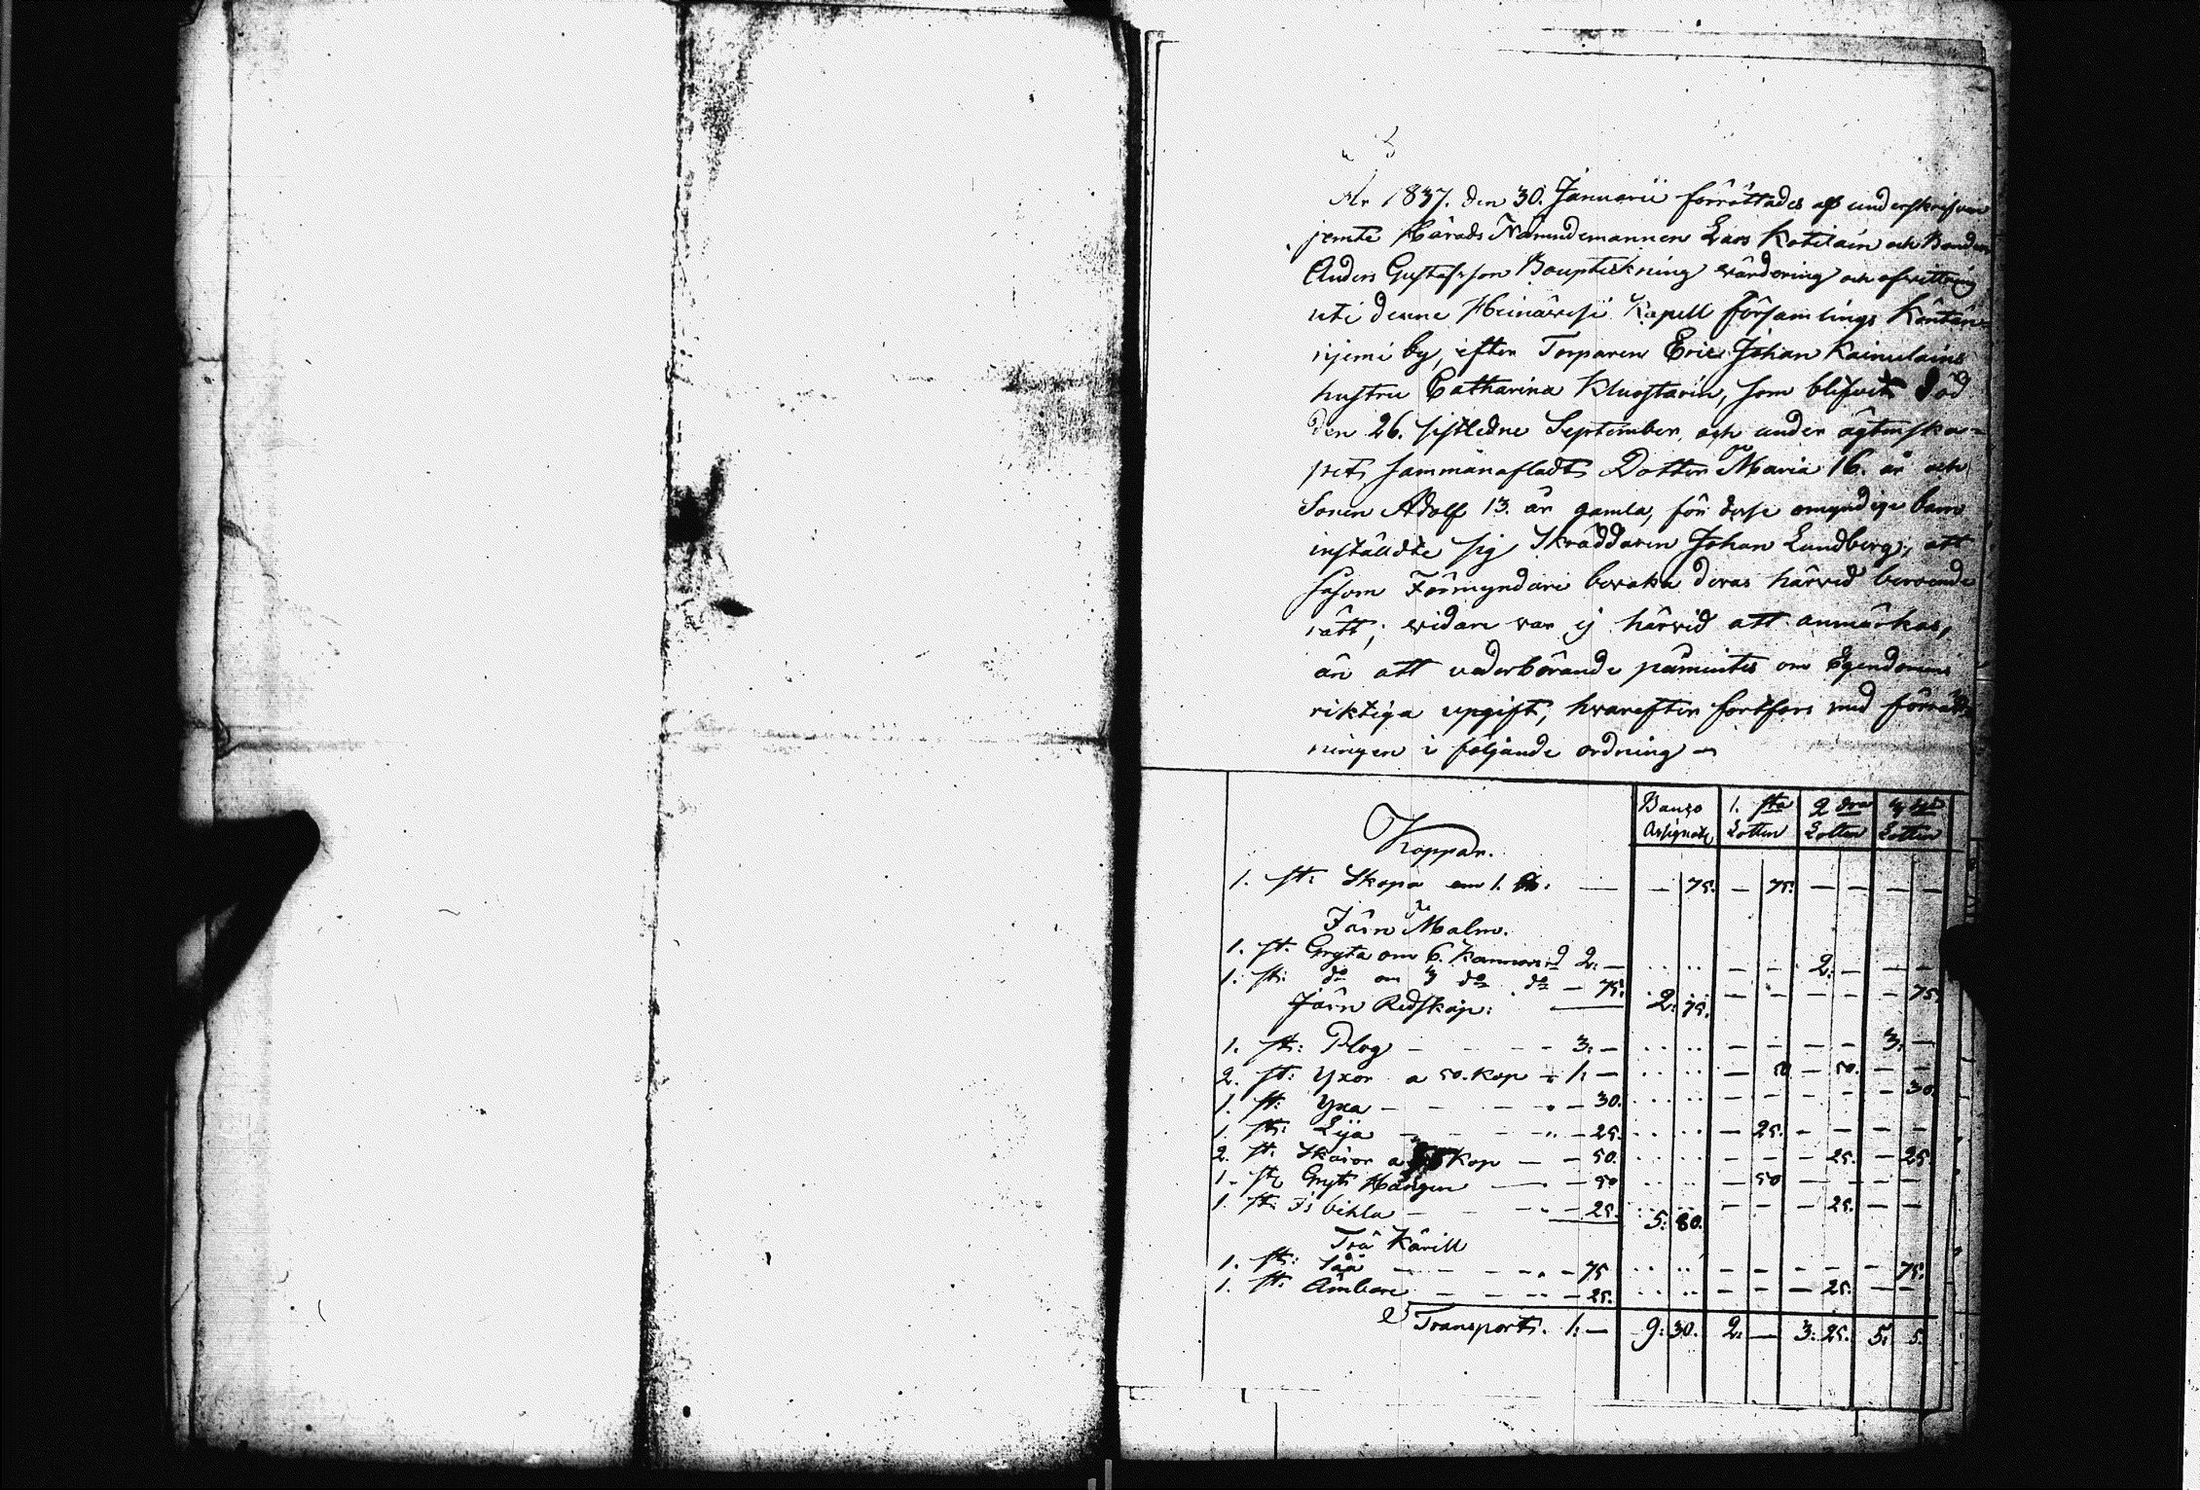 År 1837. den 30. Januarii förrättades af underskrifven
jemte Härads Nämndemannen Lars Kotilain och Bonden
Anders Gustafsson Boupteckning värdering och afvittring
uti denne Heinävesi Kapell församlings Kontan-
njemi by, efter Torparen Eric Johan Kainulains
hustru Catharina Kluostarin, som blifvit död
den 26. sistledne September, och under ägtenska-
pet, sammanafladt Dottern Maria 16. år och
Sonen Adolf 13. år gamla, för desse omyndige barn
instäldte sig Skräddaren Johan Lundberg, att
såsom Förmyndare bevaka deras härvid beroende
rätt; vidare var ej härvid att anmärkas,
än att vederbörande påmintes om Egendomens
riktiga upgift, hvarefter fortfors med förrätt-
ningen i följande ordning
Banco Assignate 1. sta Lotten 2 dra Lotten 3 dje Lotten
Koppar.
1. st: Skopa om 1. — — 75. — 75. — — — —
Järn Malm.
1. st. Gryta om 6. Kannors rd 2: — — — 2: — — —
1. st: do om 3 do do — 75: — — — — — 75.
Järn Redskap: 2: 75.
1. st: Plog — — 3: — — — — — 3: —
2. st: Yxor a 50. Kop — 1: — — 50 — 50. — —
1. st: Yxa — — — 30. — — — — — 30.
1. st: Lija — — — 25. — 25. — — — —
2. st: Skäror a Kop — — 50. — — — 25. — 25.
1. st Gryt Hängen — — 50 — 50 — — — —
1. st: Is bihla — — — 25. 5: 80. — — — 25. — —
Trä Kärill
1. st: Såå — — — 75 — — — — — 75.
1. st: Ämbare — — — 25. — — — 25. — —
Transport. 1: — 9: 30. 2: — 3: 25. 5: 5.